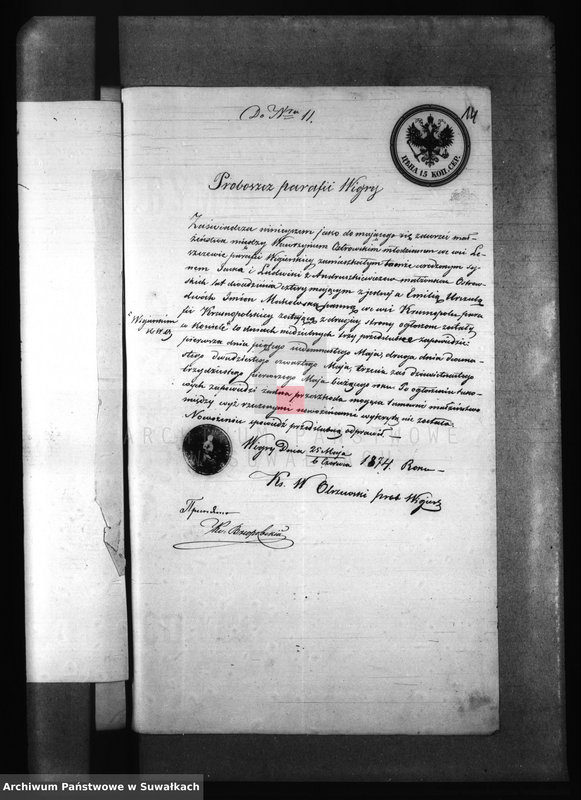 Do Nru 11.
14
ЦѢНА 15 КОП. СЕР.
Proboszcz parafii Wigry
Zaświadcza niniejszem jako do mającego się zawrzeć mał-
żeństwa między Wawrzyńcem Ostrowskim młodzianem we wsi Le-
szczewie parafii Wigierskiej zamieszkałym tamże urodzonym sy-
nem Jana i Ludwiki z Andruszkiewiczów małżonków Ostrow-
skich lat dwadzieścia cztery mającym z jednej a Emilią Urszulą
dwóch imion Makowską panną we wsi Krasnopolu para-
fii Krasnopolskiej zostającą z drugiej strony ogłoszone zostały
w Kościele Wigierskim w dniach niedzielnych trzy przedślubne zapowiedzie:
pierwsza dnia piątego siedemnastego Maja, druga dnia dwuna-
stego dwudziestego czwartego Maja, trzecia zaś dziewiętnastego
trzydziestego pierwszego Maja bieżącego roku. Po ogłoszeniu tako-
wych zapowiedzi żadna przeszkoda mogąca tamować małżeństwo
między wyż rzeczonymi nowożeńcami wykrytą nie została.
Nowożeniec spowiedź przedślubną odprawił.
Wigry dnia 25 Maja / 6 Czerwca 1874 Roku
Ks. W Olszewski prob Wigier
Принято
ARCHIWUM PAŃSTWOWE
W SUWAŁKACH
Archiwum Państwowe w Suwałkach